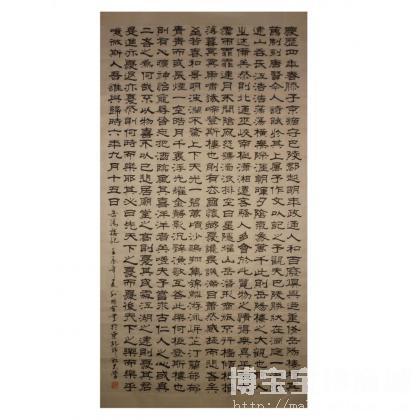 慶曆四年春滕子京謫守巴陵郡越明年政通人和百廢具興乃重修岳陽樓增其
舊制刻唐賢今人詩賦於其上屬予作文以記之予觀夫巴陵勝狀在洞庭一湖銜
遠山吞長江浩浩蕩蕩橫無際涯朝暉夕陰氣象萬千此則岳陽樓之大觀也前人
之述備矣然則北通巫峽南極瀟湘遷客騷人多會於此覽物之情得無異乎若夫
霪雨霏霏連月不開陰風怒號濁浪排空日星隱耀山岳潛形商旅不行檣傾楫摧
薄暮冥冥虎嘯猿啼登斯樓也則有去國懷鄉憂讒畏譏滿目蕭然感極而悲者矣
至若春和景明波瀾不驚上下天光一碧萬頃沙鷗翔集錦鱗游泳岸芷汀蘭郁郁
青青而或長煙一空皓月千里浮光耀金靜影沉璧漁歌互答此樂何極登斯樓也
則有心曠神怡寵辱皆忘把酒臨風其喜洋洋者矣嗟夫予嘗求古仁人之心或異
二者之為何哉不以物喜不以己悲居廟堂之高則憂其民處江湖之遠則憂其君
是進亦憂退亦憂然則何時而樂耶其必曰先天下之憂而憂後天下之樂而樂乎
噫微斯人吾誰與歸時六年九月十五日 岳陽樓記
博宝